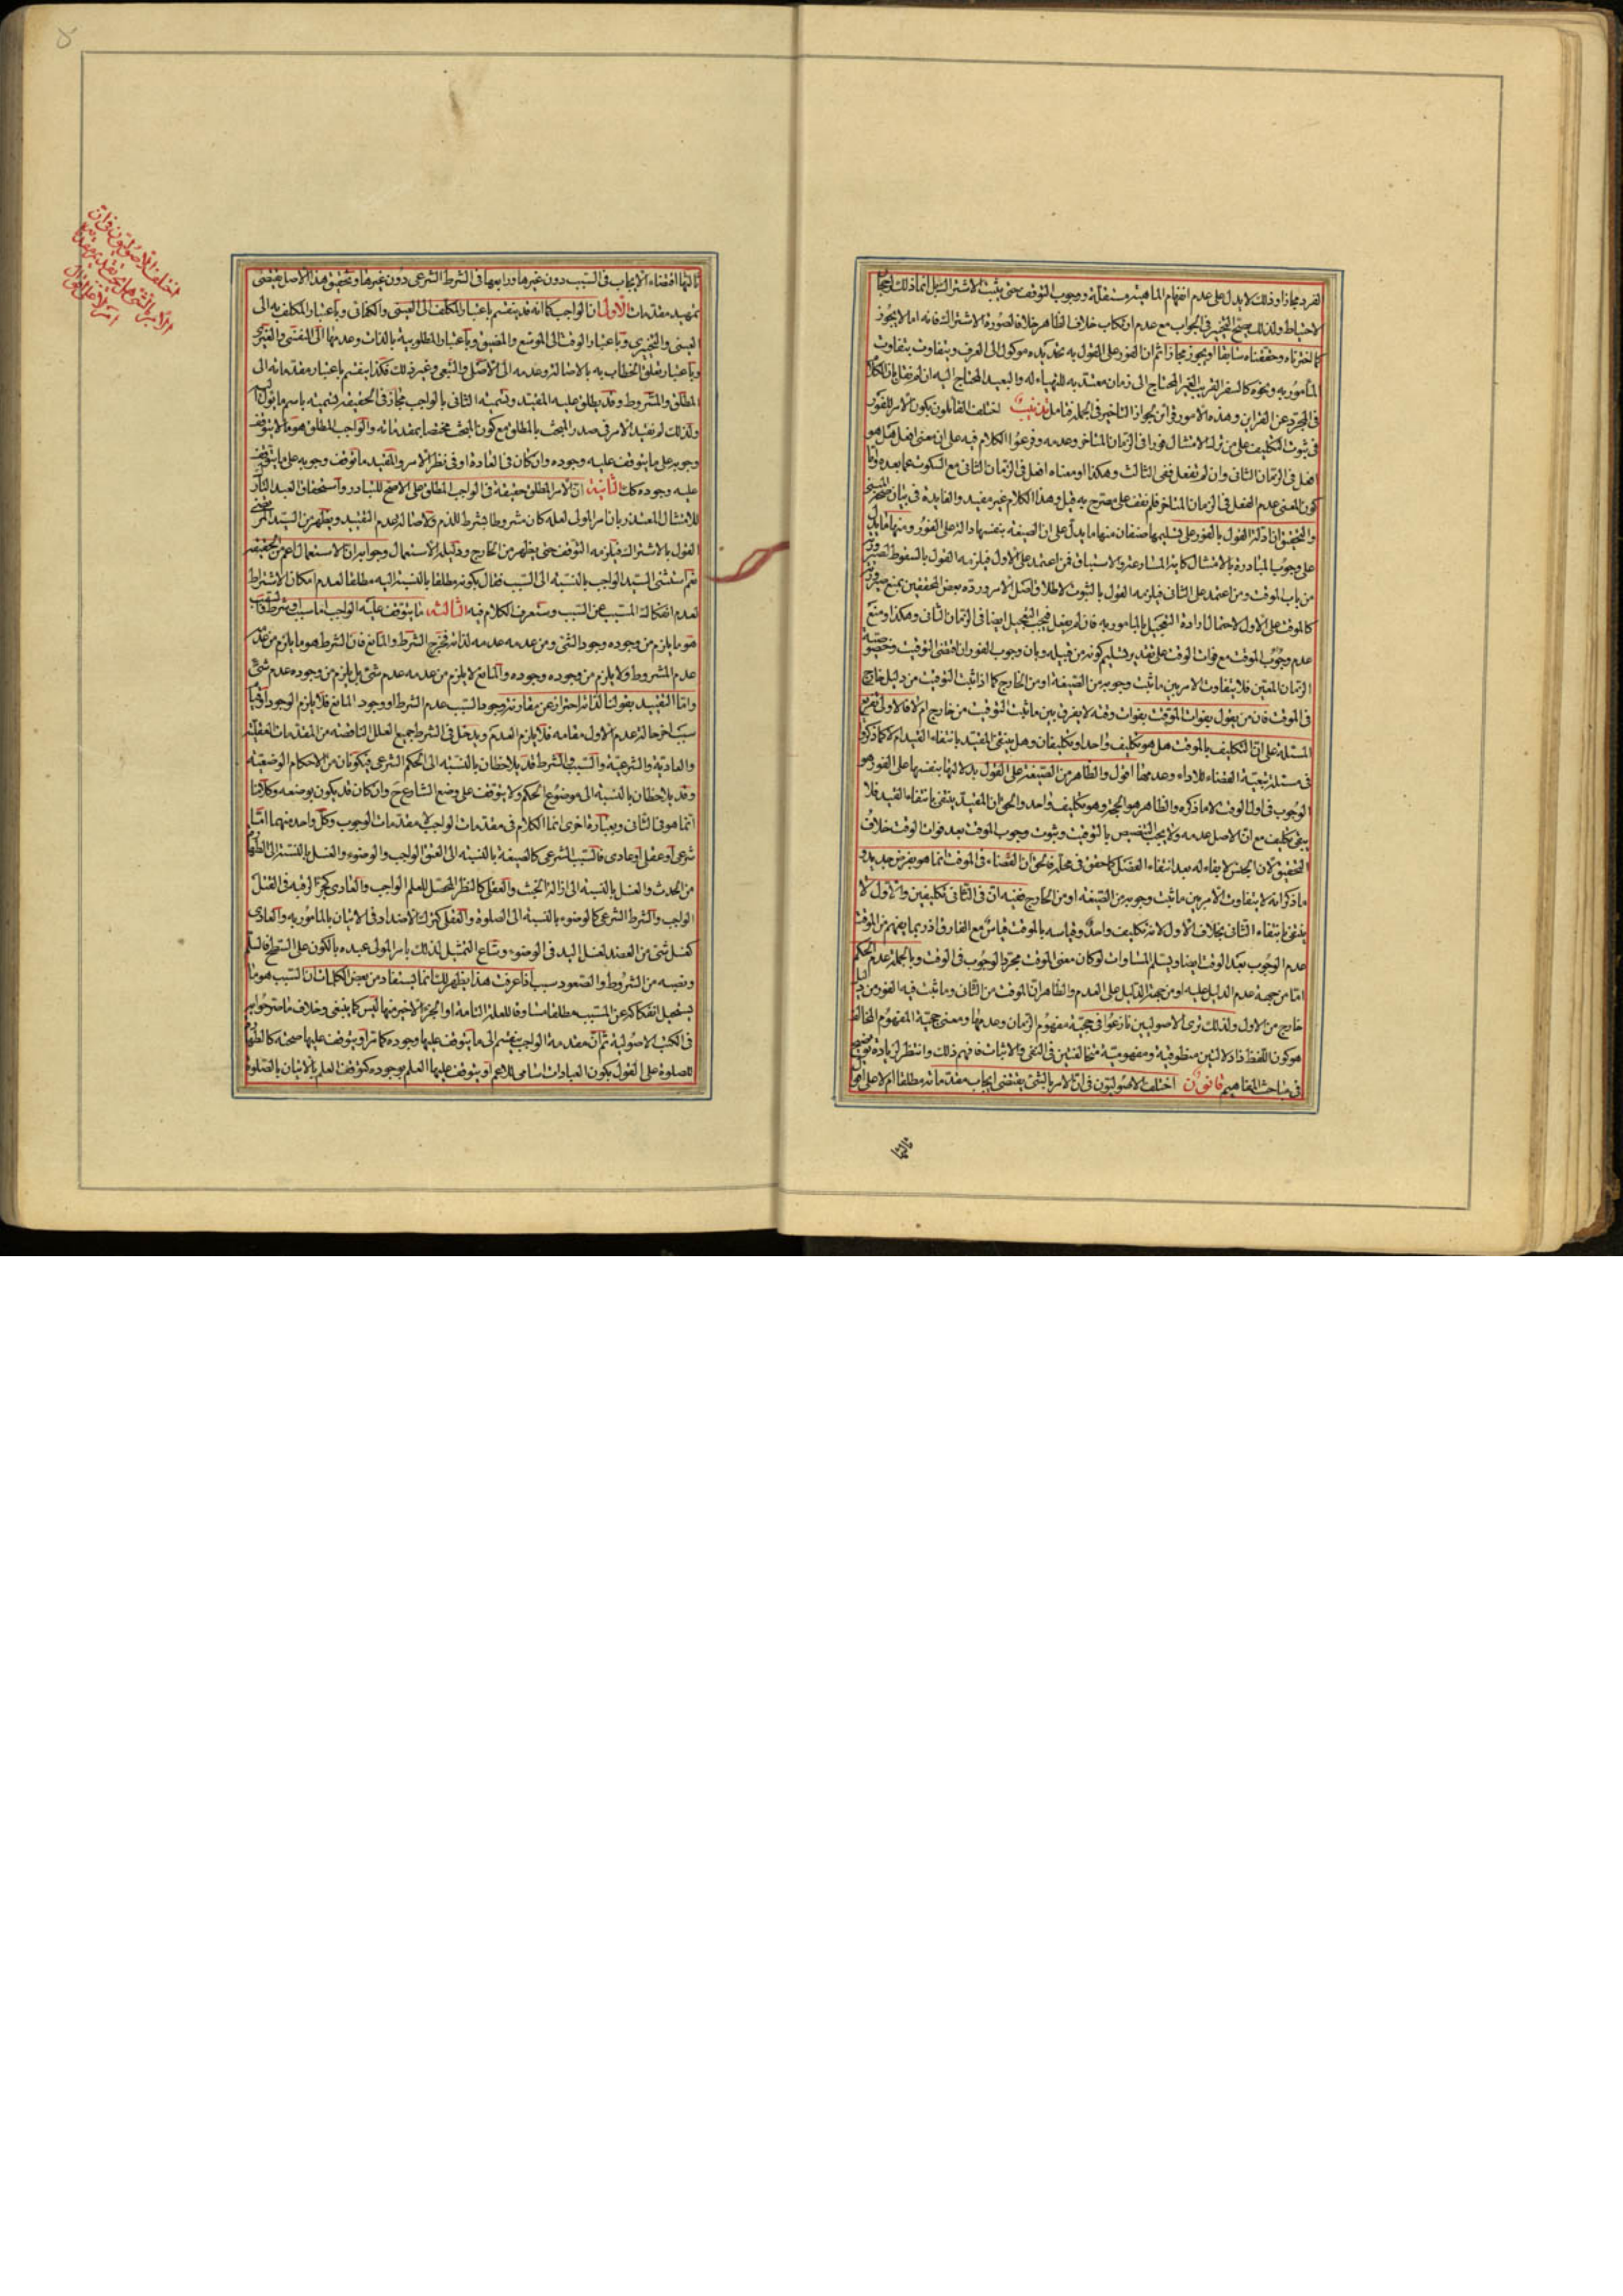 الفرد مجازا وذلك لا يدل على عدم انفهام الماهية مستقلة ووجوب التوقف حتى يثبت الاشتراك بل انما ذلك
لاحتياط ولذلك يصح التخيير في الجواب مع عدم ارتكاب خلاف الظاهر خلاف لصورة الاشتراك فانه اما لا يجوز
كما اخترناه وحققناه سابقا او يجوز مجازا ثم ان الفور على القول به تحديده موكول الى العرف ويتفاوت بتفاوت
المأمور به ونحوه كالسفر القريب الغير المحتاج الى زمان معتد به للتهياء له والبعيد المحتاج اليه
في المجرد عن القراين وهذه الامور قراين بجواز التاخير في الجملة فتامل تذنيب اختلف القائلون بكون الامر للفور
في ثبوت التكليف على من ترك الامتثال فورا في الزمان المتاخر وعدمه وفرعوا الكلام فيه على ان معنى افعل هل هو
افعل في الزمان الثانى وان لم تفعل ففى الثالث وهكذا او معناه افعل في الزمان الثانى مع السكوت عما بعده
كون المعنى عدم الفعل في الزمان المتاخر فلم نقف على مصرح به قبل وهذا الكلام غير مفيد والفايدة في بيان صحة
والتحقيق ان ادلة القول بالفور على تسليمها صنفان منها ما يدل على ان الصيغة بنفسها دالة على الفور ومنها ما يدل
على وجوب المبادرة بالامتثال كاية المسارعة والاستباق فمن اعتمد على الاول فيلزمه القول بالسقوط
من باب الموقت ومن اعتمد على الثانى فيلزمه القول بالثبوت لاطلاق اصل الامر ورده بعض المحققين بمنع
كالموقت على الاول لاحتمال ارادة التعجيل بالمامور به فان لم يفعل فيجب التعجيل ايضا في الزمان الثانى وهكذا ومنع
عدم وجوب الموقت مع فوات الوقت على تقدير تسليم كونه من قبيله وبان وجوب الفور ان اقتضى التوقيت وخصوصية
الزمان المعين فلا يتفاوت الامر بين ما ثبت وجوبه من الصيغة او من الخارج كما اذا ثبت التوقيت من دليل خارج
في الموقت فان من يقول بفوات الموقت بفوات وقته لا يفرق بين ما ثبت التوقيت من خارج ام لا فالاولى تفريع
المسئلة على ان التكليف بالموقت هل هو تكليف واحد او تكليفان وهل ينتفى المقيد بانتفاء القيد ام لا كما ذكروا
في مسئلة تبعية القضاء للاداء وعدمها اقول والظاهر من الصيغة على القول بدلالتها بنفسها على الفور هو
الوجوب في اول الوقت لا ما ذكره والظاهر هو الحجة وهو تكليف واحد والحق ان المقيد ينتفى بانتفاء القيد فلا
يبقى تكليف مع ان الاصل عدمه ولا يجب التنصيص بالتوقيت وثبوت وجوب الموقت بعد فوات الوقت خلاف
التحقيق لان الجنس لا بقاء له بعد انتفاء الفصل كما حقق في محله فالحق ان القضاء في الموقت انما هو بفرض جديد و
ما ذكر انه لا يتفاوت الامر بين ما ثبت وجوبه من الصيغة او من الخارج ففيه ان في الثانى تكليفين والاول لا
ينتفى بانتفاء الثانى بخلاف الاول لانه تكليف واحد وقياسه بالموقت قياس مع الفارق اذ ربما يفهم من الموقت
عدم الوجوب بعد الوقت ايضا ويسلم المساوات لو كان معنى الموقت مجرد الوجوب في الوقت وبالجملة عدم الحكم
اما من جهة عدم الدليل عليه او من جهة الدليل على العدم والظاهر ان الموقت من الثانى وما ثبت فيه الفور من دليل
خارج من الاول ولذلك ترى الاصوليين نازعوا في حجية مفهوم الزمان وعدمها ومعنى حجية المفهوم المخالف
هو كون اللفظ ذا دلالتين منطوقية ومفهومية متخالفتين في النفى والاثبات فافهم ذلك وانتظر لزيادة توضيح
في مباحث المفاهيم قانون اختلف الاصوليون في ان الامر بالشئ يقتضى ايجاب مقدماته مطلقا ام لا على اقوال
ثالثها
ثالثها اقتضاء الايجاب في السبب دون غيرها ورابعها في الشرط الشرعى دون غيرها وتحقيق هذا الاصل يقتضى
تمهيد مقدمات الاولى ان الواجب كما انه قد ينقسم باعتبار المكلف الى العينى والكفائى وباعتبار المكلف به الى
العينى والتخييرى وباعتبار الوقت الى الموسع والمضيق وباعتبار المطلوبية بالذات وعدمها الى النفسى والغيرى
وباعتبار تعلق الخطاب به بالاصالة وعدمه الى الاصلى والتبعى وغير ذلك فكذا ينقسم باعتبار مقدماته الى
المطلق والمشروط وقد يطلق عليه المقيد وتسمية الثانى بالواجب مجاز في الحقيقة تسمية باسم ما يؤل اليه
ولذلك لم نقيد الامر في صدر المبحث بالمطلق مع كون المبحث مختصا بمقدماته والواجب المطلق هو ما لا يتوقف
وجوبه على ما يتوقف عليه وجوده وان كان في العادة او في نظر الامر والمقيد ما توقف وجوبه على ما يتوقف
عليه وجوده كك الثانية ان الامر المطلق حقيقة في الواجب المطلق على الاصح للتبادر واستحقاق العبد التارك
للامتثال المعتذر بان امر المولى لعله كان مشروطا بشرط للذم ولاصالة عدم التقييد ويظهر من السيد المرتضى
القول بالاشتراك فيلزمه التوقف حتى يظهر من الخارج ودليله الاستعمال وجوابه ان الاستعمال اعم من الحقيقة
نعم استثنى السيد الواجب بالنسبة الى السبب فقال بكونه مطلقا بالنسبة اليه مطلقا لعدم امكان الاشتراط
لعدم انفكاك المسبب عن السبب وستعرف الكلام فيه الثالثة ما يتوقف عليه الواجب اما سبب او شرط والسبب
هو ما يلزم من وجوده وجود الشئ ومن عدمه عدمه لذاته فخرج الشرط والمانع فان الشرط هو ما يلزم من عدمه
عدم المشروط ولا يلزم من وجوده وجوده والمانع لا يلزم من عدمه عدم شئ بل يلزم من وجوده عدم شئ
واما التقييد بقولنا لذاته احتراز عن مقارنة وجود السبب عدم الشرط او وجود المانع فلا يلزم الوجود او قيام
سبب اخر حالة عدم الاول مقامه فلا يلزم العدم ويدخل في الشرط جميع العلل الناقصة من المقدمات العقلية
والعادية والشرعية والسبب والشرط قد يلاحظان بالنسبة الى الحكم الشرعى فيكونان من الاحكام الوضعية
وقد يلاحظان بالنسبة الى موضوع الحكم ولا يتوقف على وضع الشارع ح وان كان قد يكون بوضعه وكلامنا
انما هو في الثانى وبعبارة اخرى انما الكلام في مقدمات الواجب لا مقدمات الوجوب وكل واحد منهما اما
شرعى او عقلى او عادى فالسبب الشرعى كالصيغة بالنسبة الى العتق الواجب والوضوء والغسل بالنسبة الى الطهارة
من الحدث والغسل بالنسبة الى ازالة الخبث والعقلى كالنظر المحصل للعلم الواجب والعادى كحز الرقبة في القتل
الواجب والشرط الشرعى كالوضوء بالنسبة الى الصلوة والعقلى كترك الاضداد في الاتيان بالمأمور به والعادى
كغسل شئ من العضد لغسل اليد في الوضوء وشاع التمثيل لذلك بامر المولى عبده بالكون على السطح فالسلم
ونصبه من الشروط والصعود سبب اذا عرفت هذا يظهر لك انما يستفاد من بعض الكلمات ان السبب هو ما
يستحيل انفكاكه عن المسبب مطلقا مساوقا للعلة التامة او الجزء الاخير منها ليس كما ينبغى وخلاف ما صرحوا به
في الكتب الاصولية ثم ان مقدمة الواجب ينقسم الى ما يتوقف عليها وجوده كما مر او يتوقف عليها صحته كالطهارة
للصلوة على القول بكون العبادات اسامى للاعم او يتوقف عليها العلم بوجوده كتوقف العلم بالاتيان بالصلوة
اختلف الاصوليون في ان
الامر بالشئ هل
ام لا على اقوال